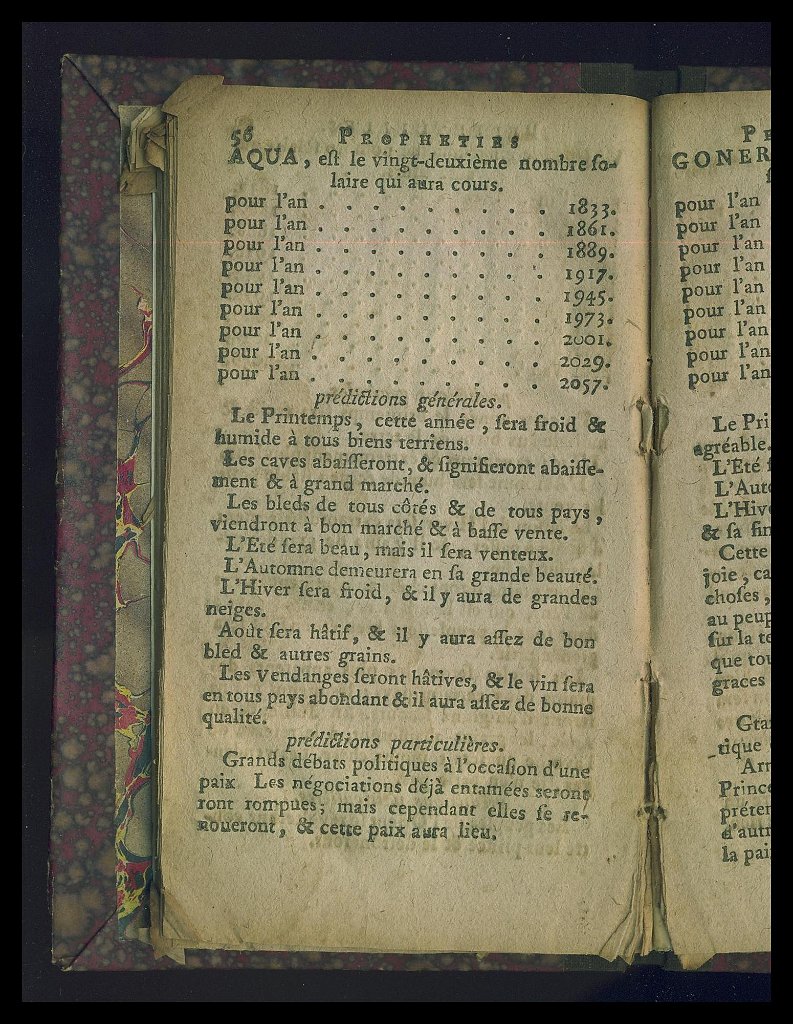 56 PROPHETIES
AQUA, eſt le vingt-deuxième nombre ſo-
laire qui aura cours.
pour l'an . . . . . . . . . 1833.
pour l'an . . . . . . . . . 1861.
pour l'an . . . . . . . . . 1889.
pour l'an . . . . . . . . . 1917.
pour l'an . . . . . . . . . 1945.
pour l'an . . . . . . . . . 1973.
pour l'an . . . . . . . . . 2001.
pour l'an . . . . . . . . . 2029.
pour l'an . . . . . . . . . 2057.
prédictions générales.
Le Printemps, cette année, ſera froid &
humide à tous biens terriens.
Les caves abaiſſeront, & ſignifieront abaiſſe-
ment & à grand marché.
Les bleds de tous côtés & de tous pays,
viendront à bon marché & à baſſe vente.
L'Eté ſera beau, mais il ſera venteux.
L'Automne demeurera en ſa grande beauté.
L'Hiver ſera froid, & il y aura de grandes
neiges.
Août ſera hâtif, & il y aura aſſez de bon
bled & autres grains.
Les vendanges ſeront hâtives, & le vin ſera
en tous pays abondant & il aura aſſez de bonne
qualité.
prédictions particulières.
Grands débats politiques à l'occaſion d'une
paix. Les négociations déjà entamées seront
ront rompues; mais cependant elles ſe re-
noueront, & cette paix aura lieu.
GONER
pour l'an
pour l'an
pour l'an
pour l'an
pour l'an
pour l'an
pour l'an
pour l'an
pour l'an
Le Pri
agréable.
L'Eté
L'Auto
L'Hiv
& ſa fin
Cette
joie, ca
choſes,
au peup
ſur la te
que tou
graces
Gra
tique
Arr
Prince
préten
d'autr
la pai